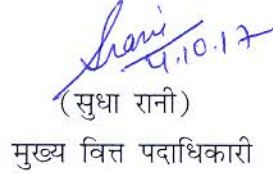 Srani
4.10.17
(सुधा रानी)
मुख्य वित्त पदाधिकारी